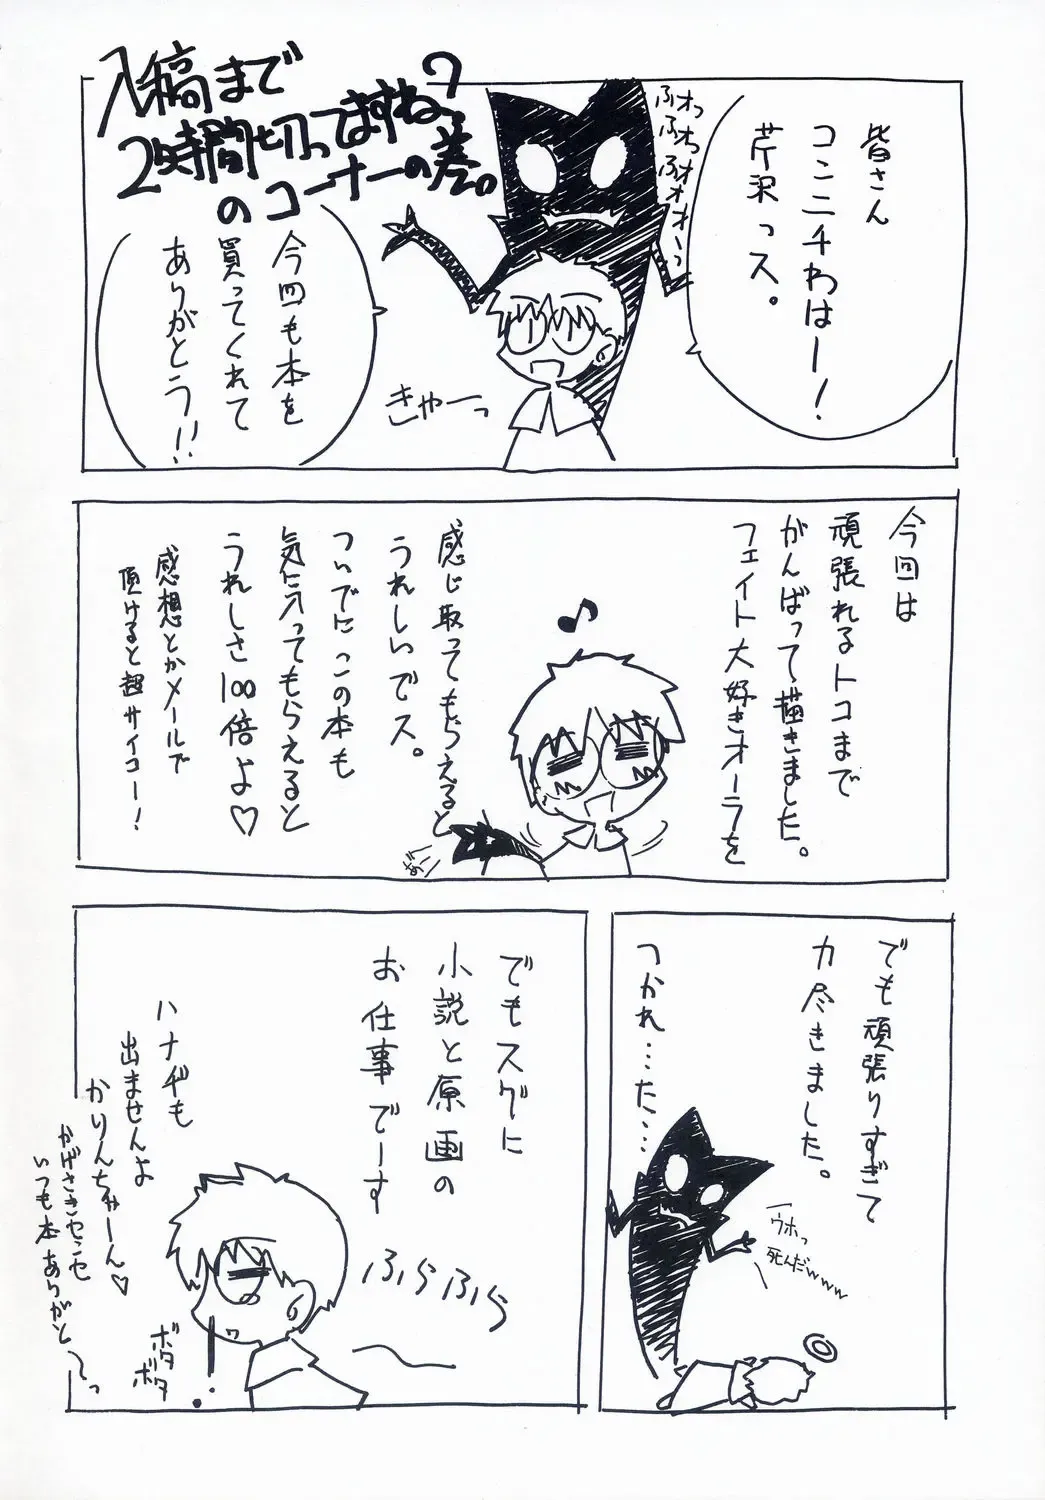 入稿まで
2時間切ってますね?
のコーナーの差。
皆さん
コンニチわはー!
芹沢っス。
ふオっ
ふオっ
ふオオオーっ
今回も本を
買ってくれて
ありがとう!!
きゃーっ
今回は
頑張れるトコまで
がんばって描きました。
フェイト大好きオーラを
感じ取ってもらえると
うれしいでス。
ついでにこの本も
気に入ってもらえると
うれしさ100倍よ♡
感想とかメールで
頂けると超サイコー!
でも頑張りすぎて
力尽きました。
つかれ…た…
ウホっ
死んだwww
でもスグに
小説と原画の
お仕事でーす
ふらふら
ハナヂも
出ませんよ
かりんちゃーん♡
いつも本ありがと〜っ
ボタ
ボタ